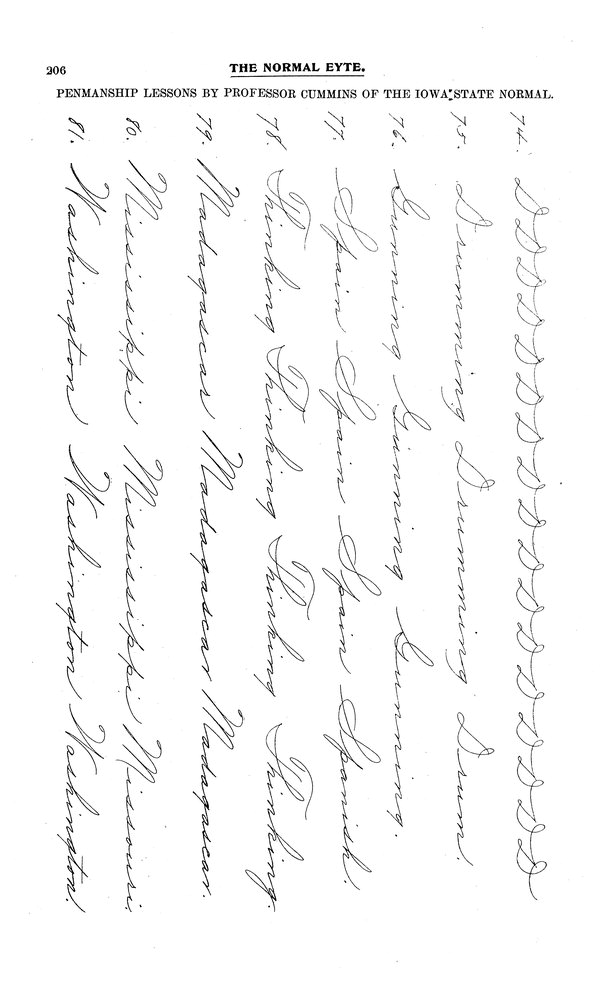 206
THE NORMAL EYTE.
PENMANSHIP LESSONS BY PROFESSOR CUMMINS OF THE IOWA STATE NORMAL.
74. D D D D D D D D D D D D D D D D D
75. Drumming Drumming Drum.
76. Gunning Gunning Gunning.
77. Spain Spain Spain Spanish.
78. Thinking Thinking Thinking Thinking.
79. Madagascar Madagascar Madagascar.
80. Mississippi Mississippi Missouri.
81. Washington Washington Washington.